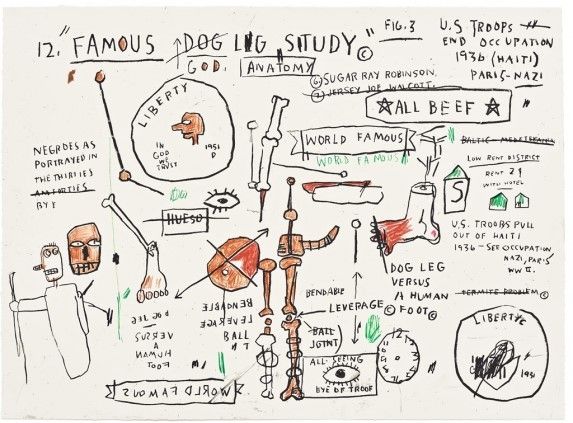 12. "FAMOUS DOG LEG STUDY" ©
GOD. ANATOMY
FIG.3
U.S. TROOPS
END OCCUPATION
1936 (HAITI)
PARIS-NAZI
⑥ SUGAR RAY ROBINSON.
⑦ JERSEY JOE WALCOTT.
☆ALL BEEF☆
LIBERTY
IN
GOD
WE
TRUST
1951
D
WORLD FAMOUS
WORLD FAMOUS
NEGROES AS
PORTRAYED IN
THE THIRTIES
LOW RENT DISTRICT
RENT 2$
WITH HOTEL
S
HUESO
U.S. TROOBS PULL
OUT OF HAITI
1936 - SEE OCCUPATION
NAZI, PARIS
WW II.
DOG LEG
VERSUS
A HUMAN
© FOOT ©
TERMITE PROBLEM ©
BENDABLE
LEVERAGE
BALL
JOINT
BENDABLE
LEVERAGE
BALL
DOG LEG
VERSUS
A
HUMAN
FOOT
ALL-SEEING
EYE OF TROOF
WORLD FAMOUS
LIBERTY
1951